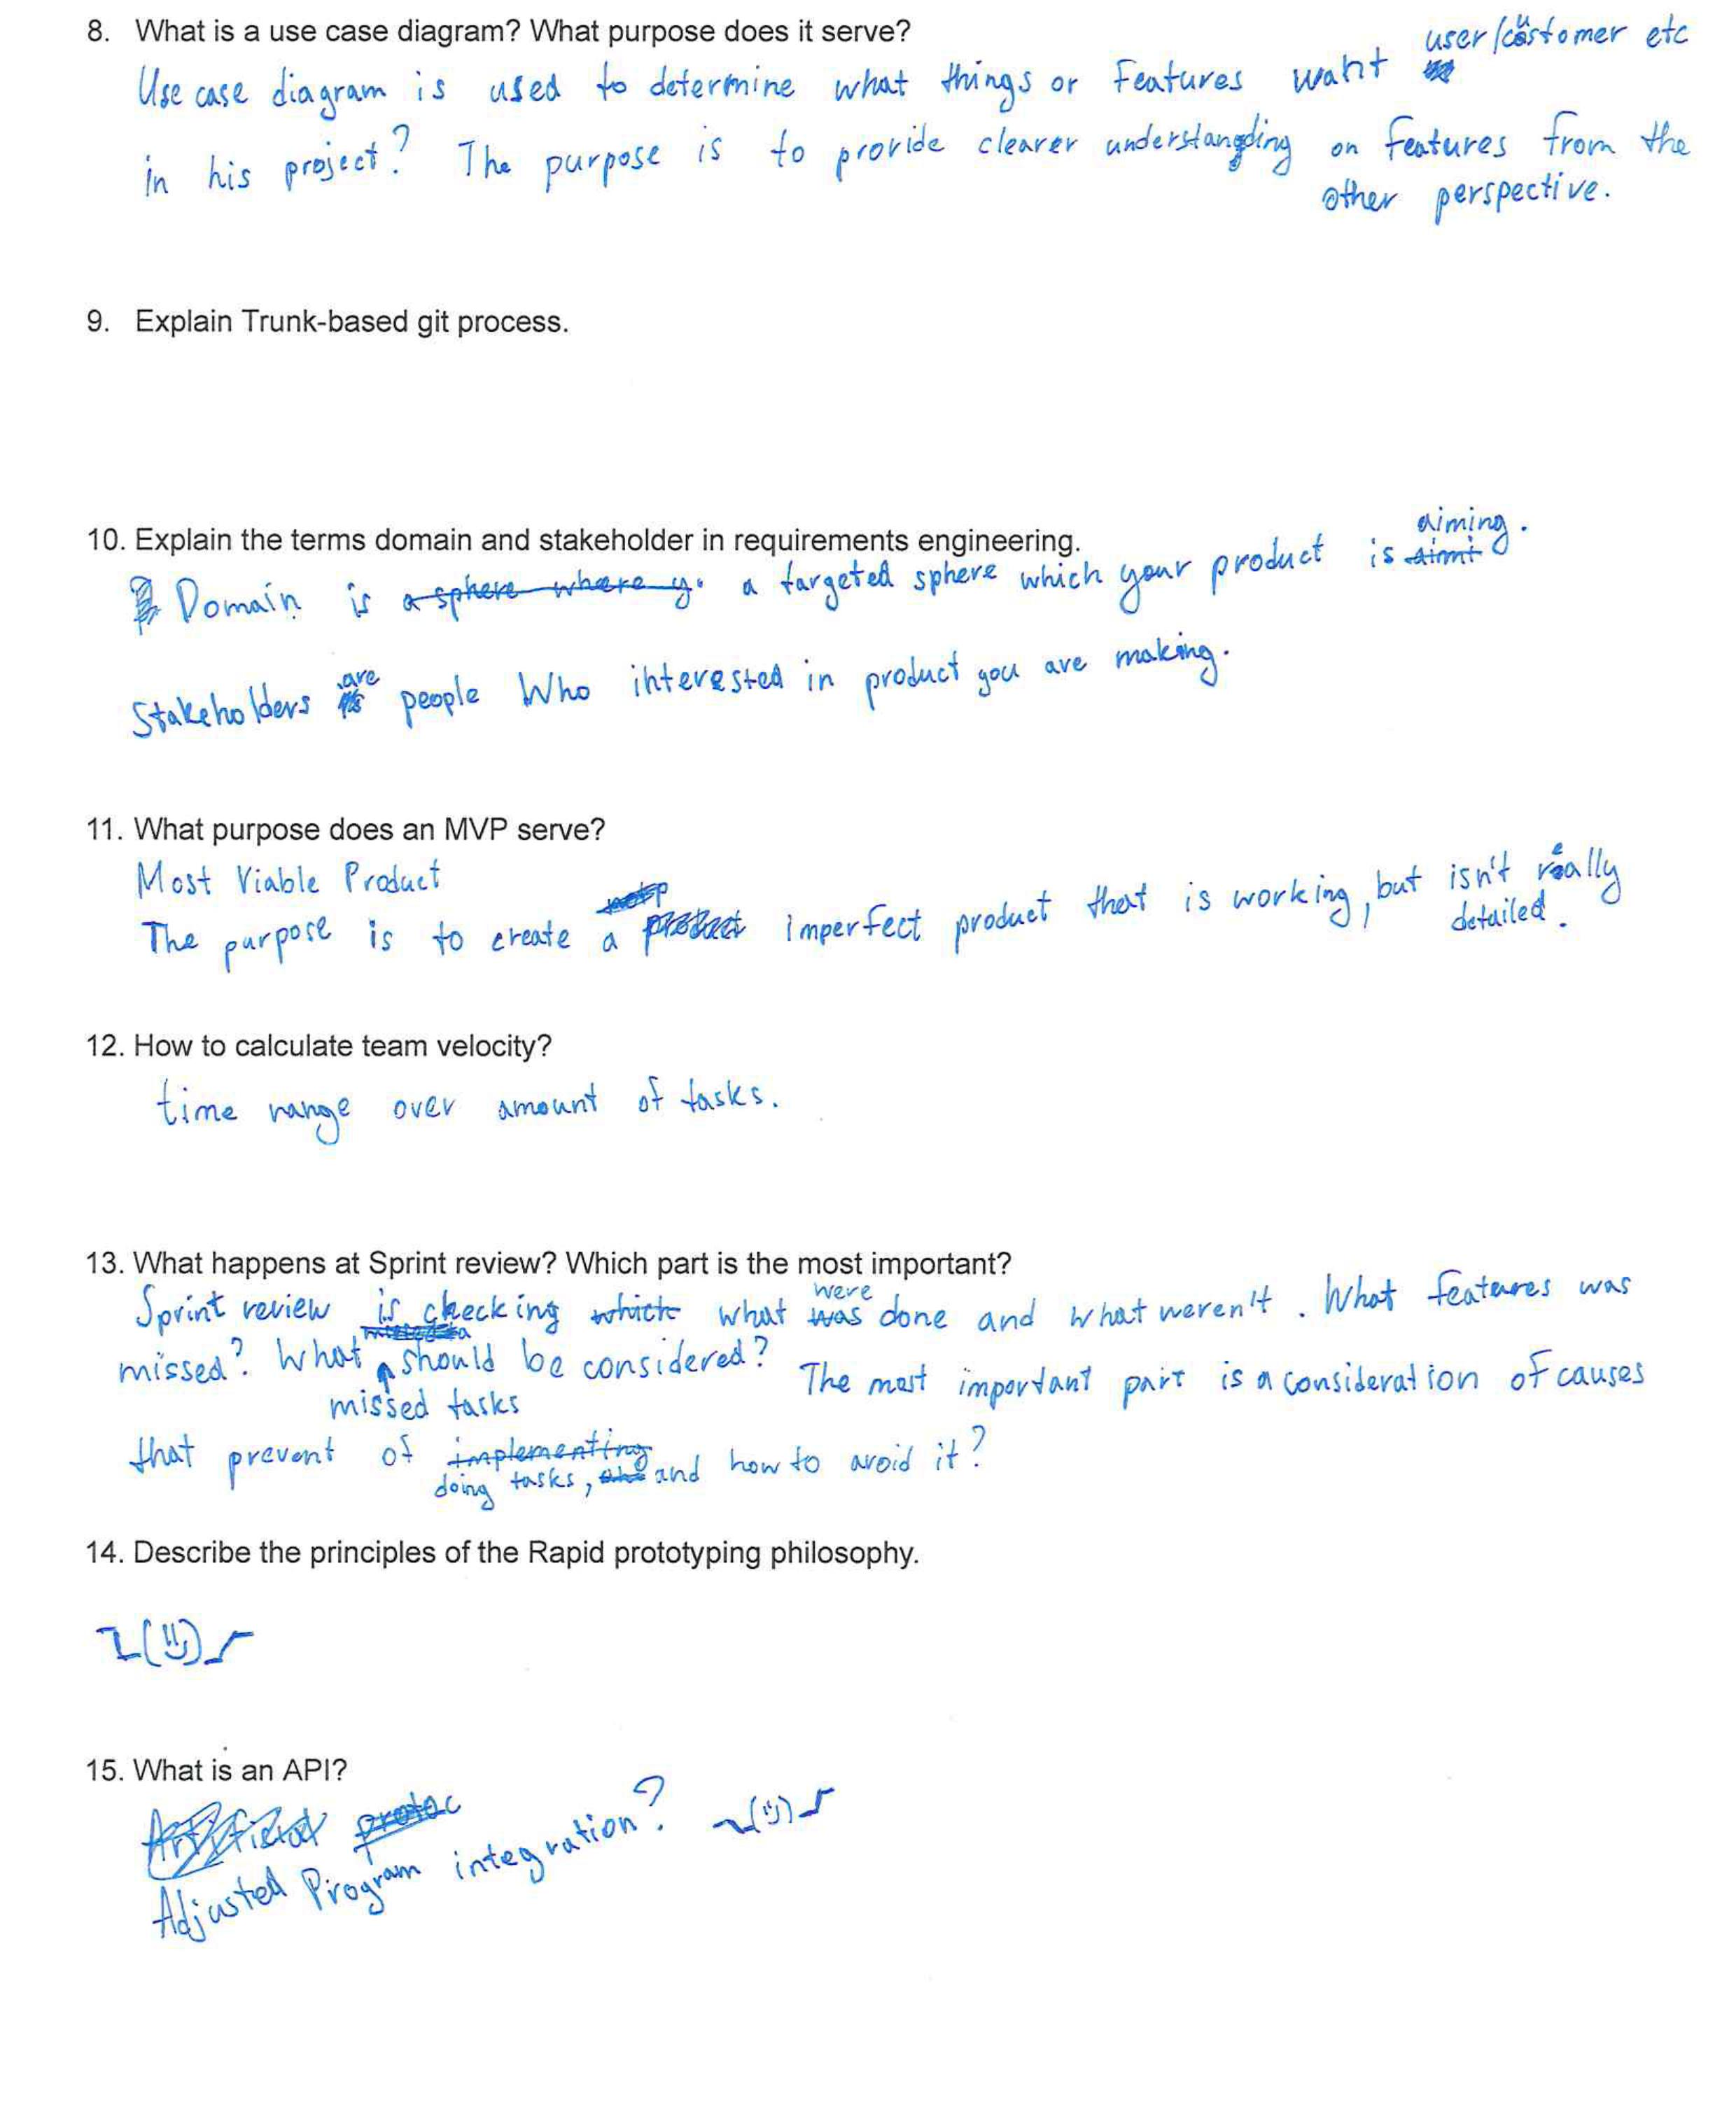 8. What is a use case diagram? What purpose does it serve?
Use case diagram is used to determine what things or features want user/customer etc
in his project? The purpose is to provide clearer understangding on features from the
other perspective.
9. Explain Trunk-based git process.
10. Explain the terms domain and stakeholder in requirements engineering.
Domain is a sphere where y. a targeted sphere which your product is aimi aiming.
Stakeholders are people who interested in product you are making.
11. What purpose does an MVP serve?
Most Viable Product
The purpose is to create a product imperfect product that is working, but isn't really
detailed.
12. How to calculate team velocity?
time range over amount of tasks.
13. What happens at Sprint review? Which part is the most important?
Sprint review is checking which what was were done and what weren't. What features was
missed? What missed tasks should be considered? The most important part is a consideration of causes
that prevent of implementing doing tasks, and how to avoid it?
14. Describe the principles of the Rapid prototyping philosophy.
15. What is an API?
Artificial protoc
Adjusted Program integration?